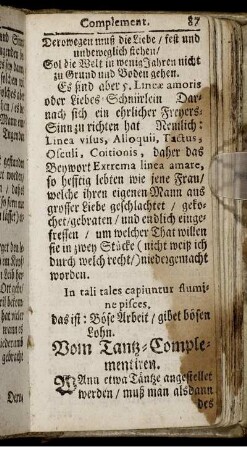 Complement. 87
Derowegen muß die Liebe / fest und
unbeweglich stehen /
Sol die Welt in wenig Jahren nicht
zu Grund und Boden gehen.
Es sind aber 5. Lineæ amoris
oder Liebes-Schnürlein Dar-
nach sich ein ehrlicher Freyers-
Sinn zu richten hat Nemlich:
Linea visus, Alloquii, Tactus,
Osculi, Coitionis, daher das
Beywort Extrema linea amare,
so hefftig lebten wie jene Frau /
welche ihren eigenen Mann aus
grosser Liebe geschlachtet / geko-
chet / gebraten / und endlich einge-
fressen / um welcher That willen
sie in zwey Stücke ( nicht weiß ich
durch welch recht / ) niedergemacht
worden.
In tali tales capiuntur flumi-
ne pisces,
das ist: Böse Arbeit / gibet bösen
Lohn.
Vom Tantz-Comple-
mentiren.
WAnn etwa Täntze angestellet
werden / muß man alsdann
des